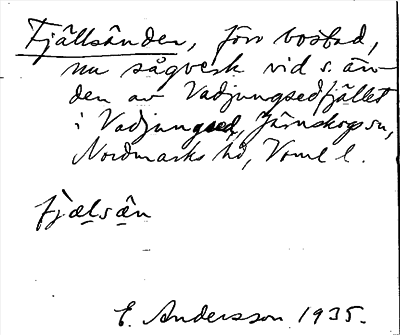 Fjällsänden, förr bostad,
nu sågverk vid s. än-
den av Vadjungsedfjället
i Vadjungsed, Järnskogs sn,
Nordmarks hd, Verml l.
fjælsän
E. Andersson 1935.